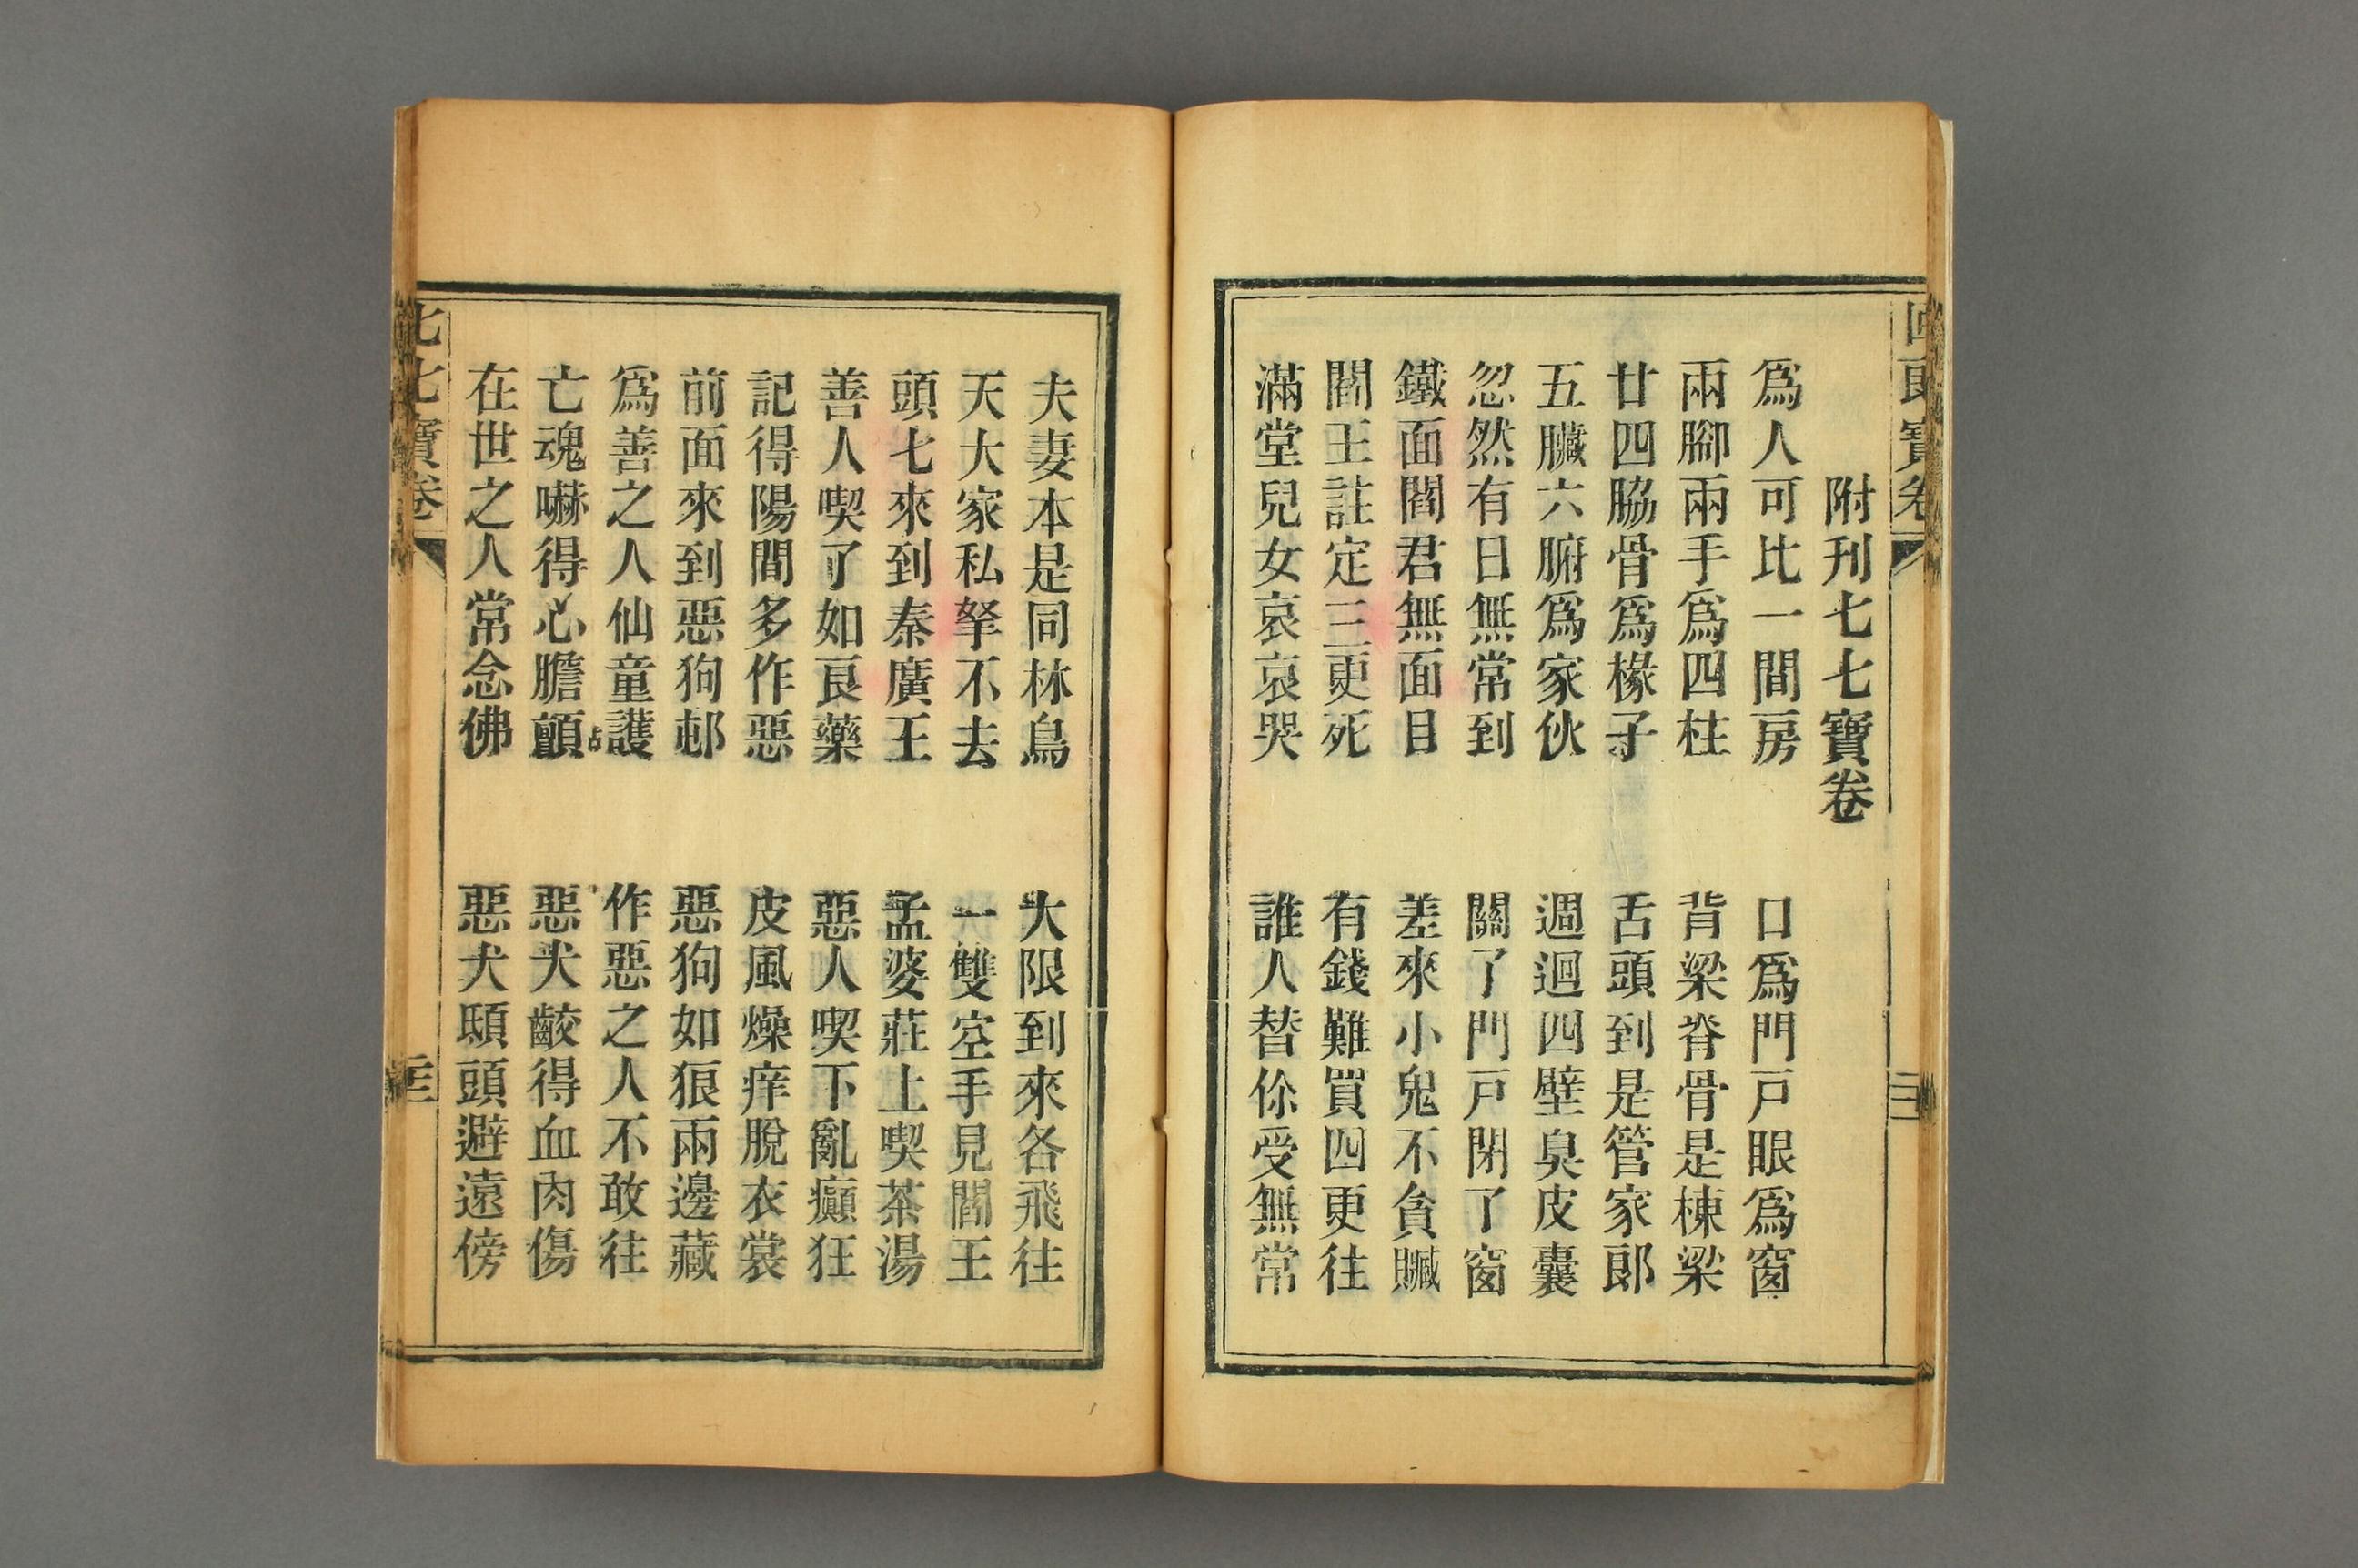 附刊七七寶卷
爲人可比一間房　口爲門戸眼爲窗
兩腳兩手爲四柱　背梁脊骨是棟梁
廿四脇骨爲椽子　舌頭到是管家郎
五臟六腑爲家伙　週迴四壁臭皮囊
忽然有日無常到　關了門戸閉了窗
鐵面閻君無面目　差來小鬼不貪贓
閻王註定三更死　有錢難買四更往
滿堂兒女哀哀哭　誰人替你受無常
夫妻本是同林鳥　大限到來各飛往
天大家私拏不去　一雙空手見閻王
頭七來到秦廣王　孟婆莊上喫茶湯
善人喫了如良藥　惡人喫下亂癲狂
記得陽間多作惡　皮風燥痒脫衣裳
前面來到惡狗邨　惡狗如狠兩邊藏
爲善之人仙童護　作惡之人不敢往
亡魂嚇得心膽顫　惡犬齩得血肉傷
在世之人常念佛　惡犬頭避遠傍
七七寶卷